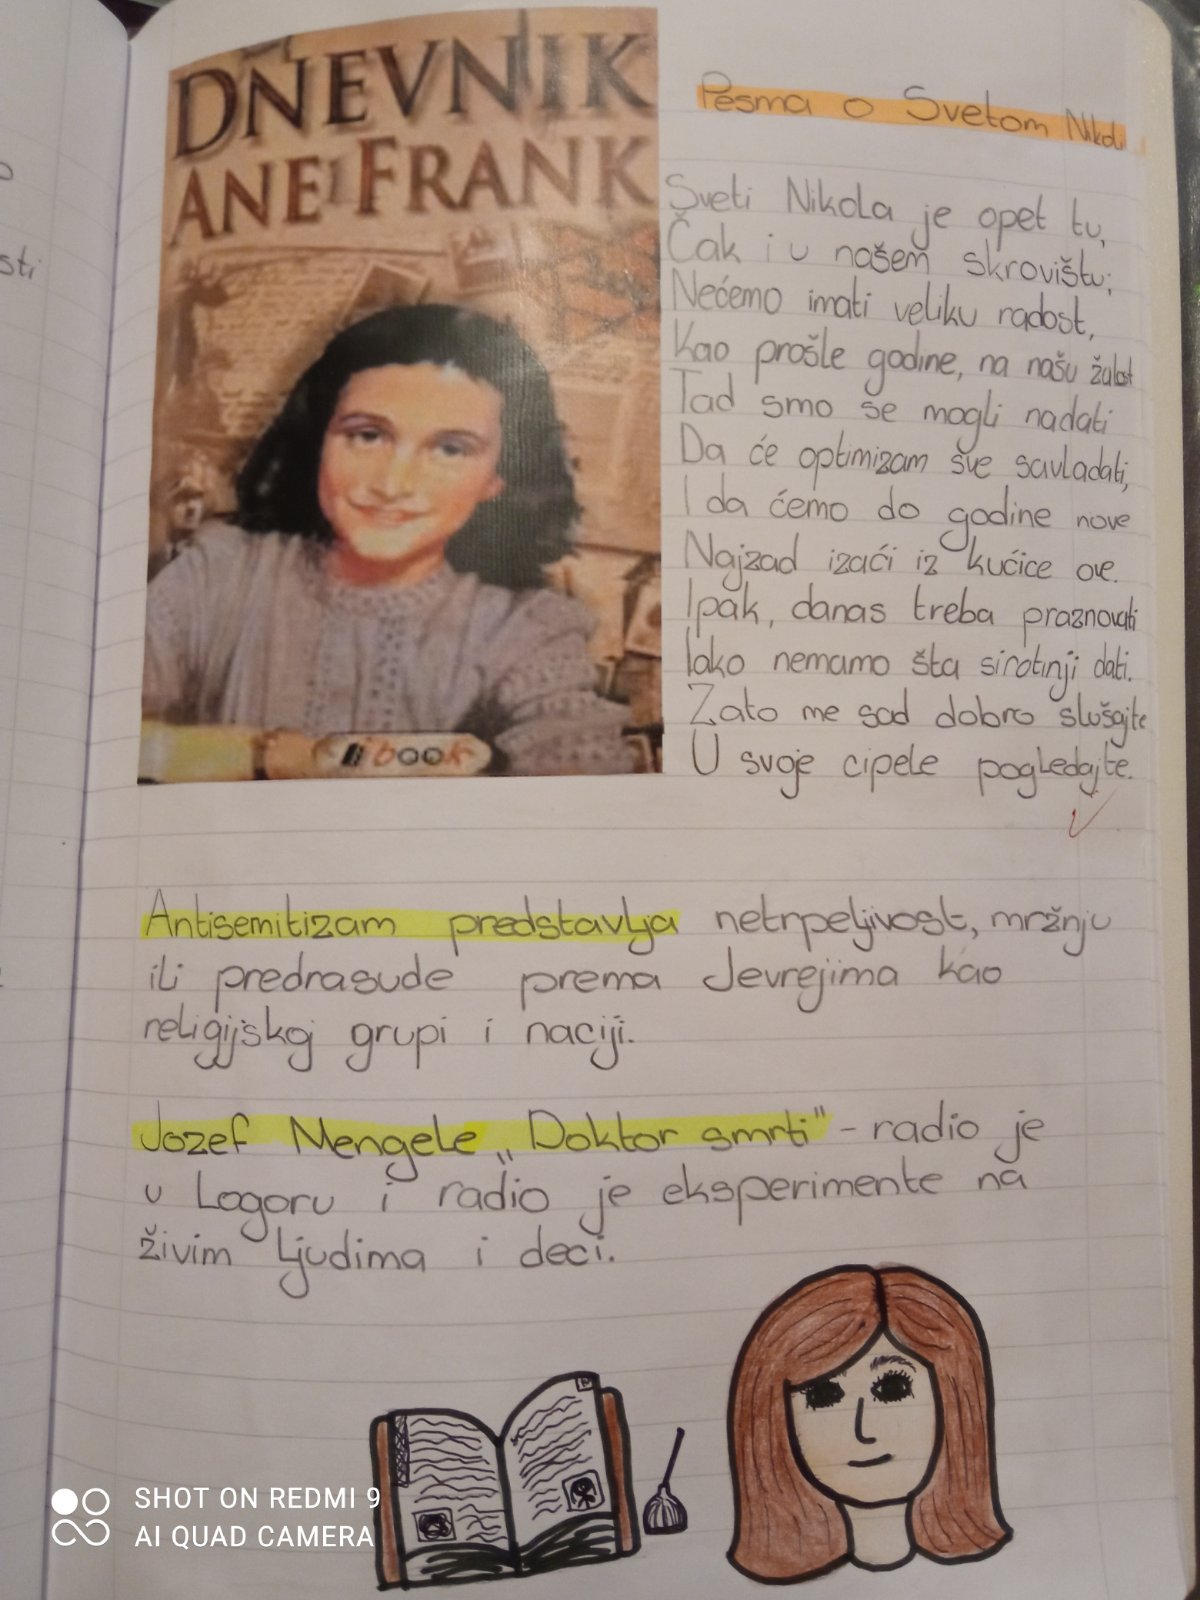 DNEVNIK
ANE FRANK
book
Pesma o Svetom Nikoli
Sveti Nikola je opet tu,
Čak i u našem skrovištu;
Nećemo imati veliku radost,
Kao prošle godine, na našu žalost
Tad smo se mogli nadati
Da će optimizam sve savladati,
I da ćemo do godine nove
Najzad izaći iz kućice ove.
Ipak, danas treba praznovati
Iako nemamo šta sirotinji dati.
Zato me sad dobro slušajte
U svoje cipele pogledajte.
sti
Antisemitizam predstavlja netrpeljivost, mržnju
ili predrasude prema Jevrejima kao
religijskoj grupi i naciji.
Jozef Mengele „Doktor smrti" - radio je
u Logoru i radio je eksperimente na
živim ljudima i deci.
SHOT ON REDMI 9
AI QUAD CAMERA